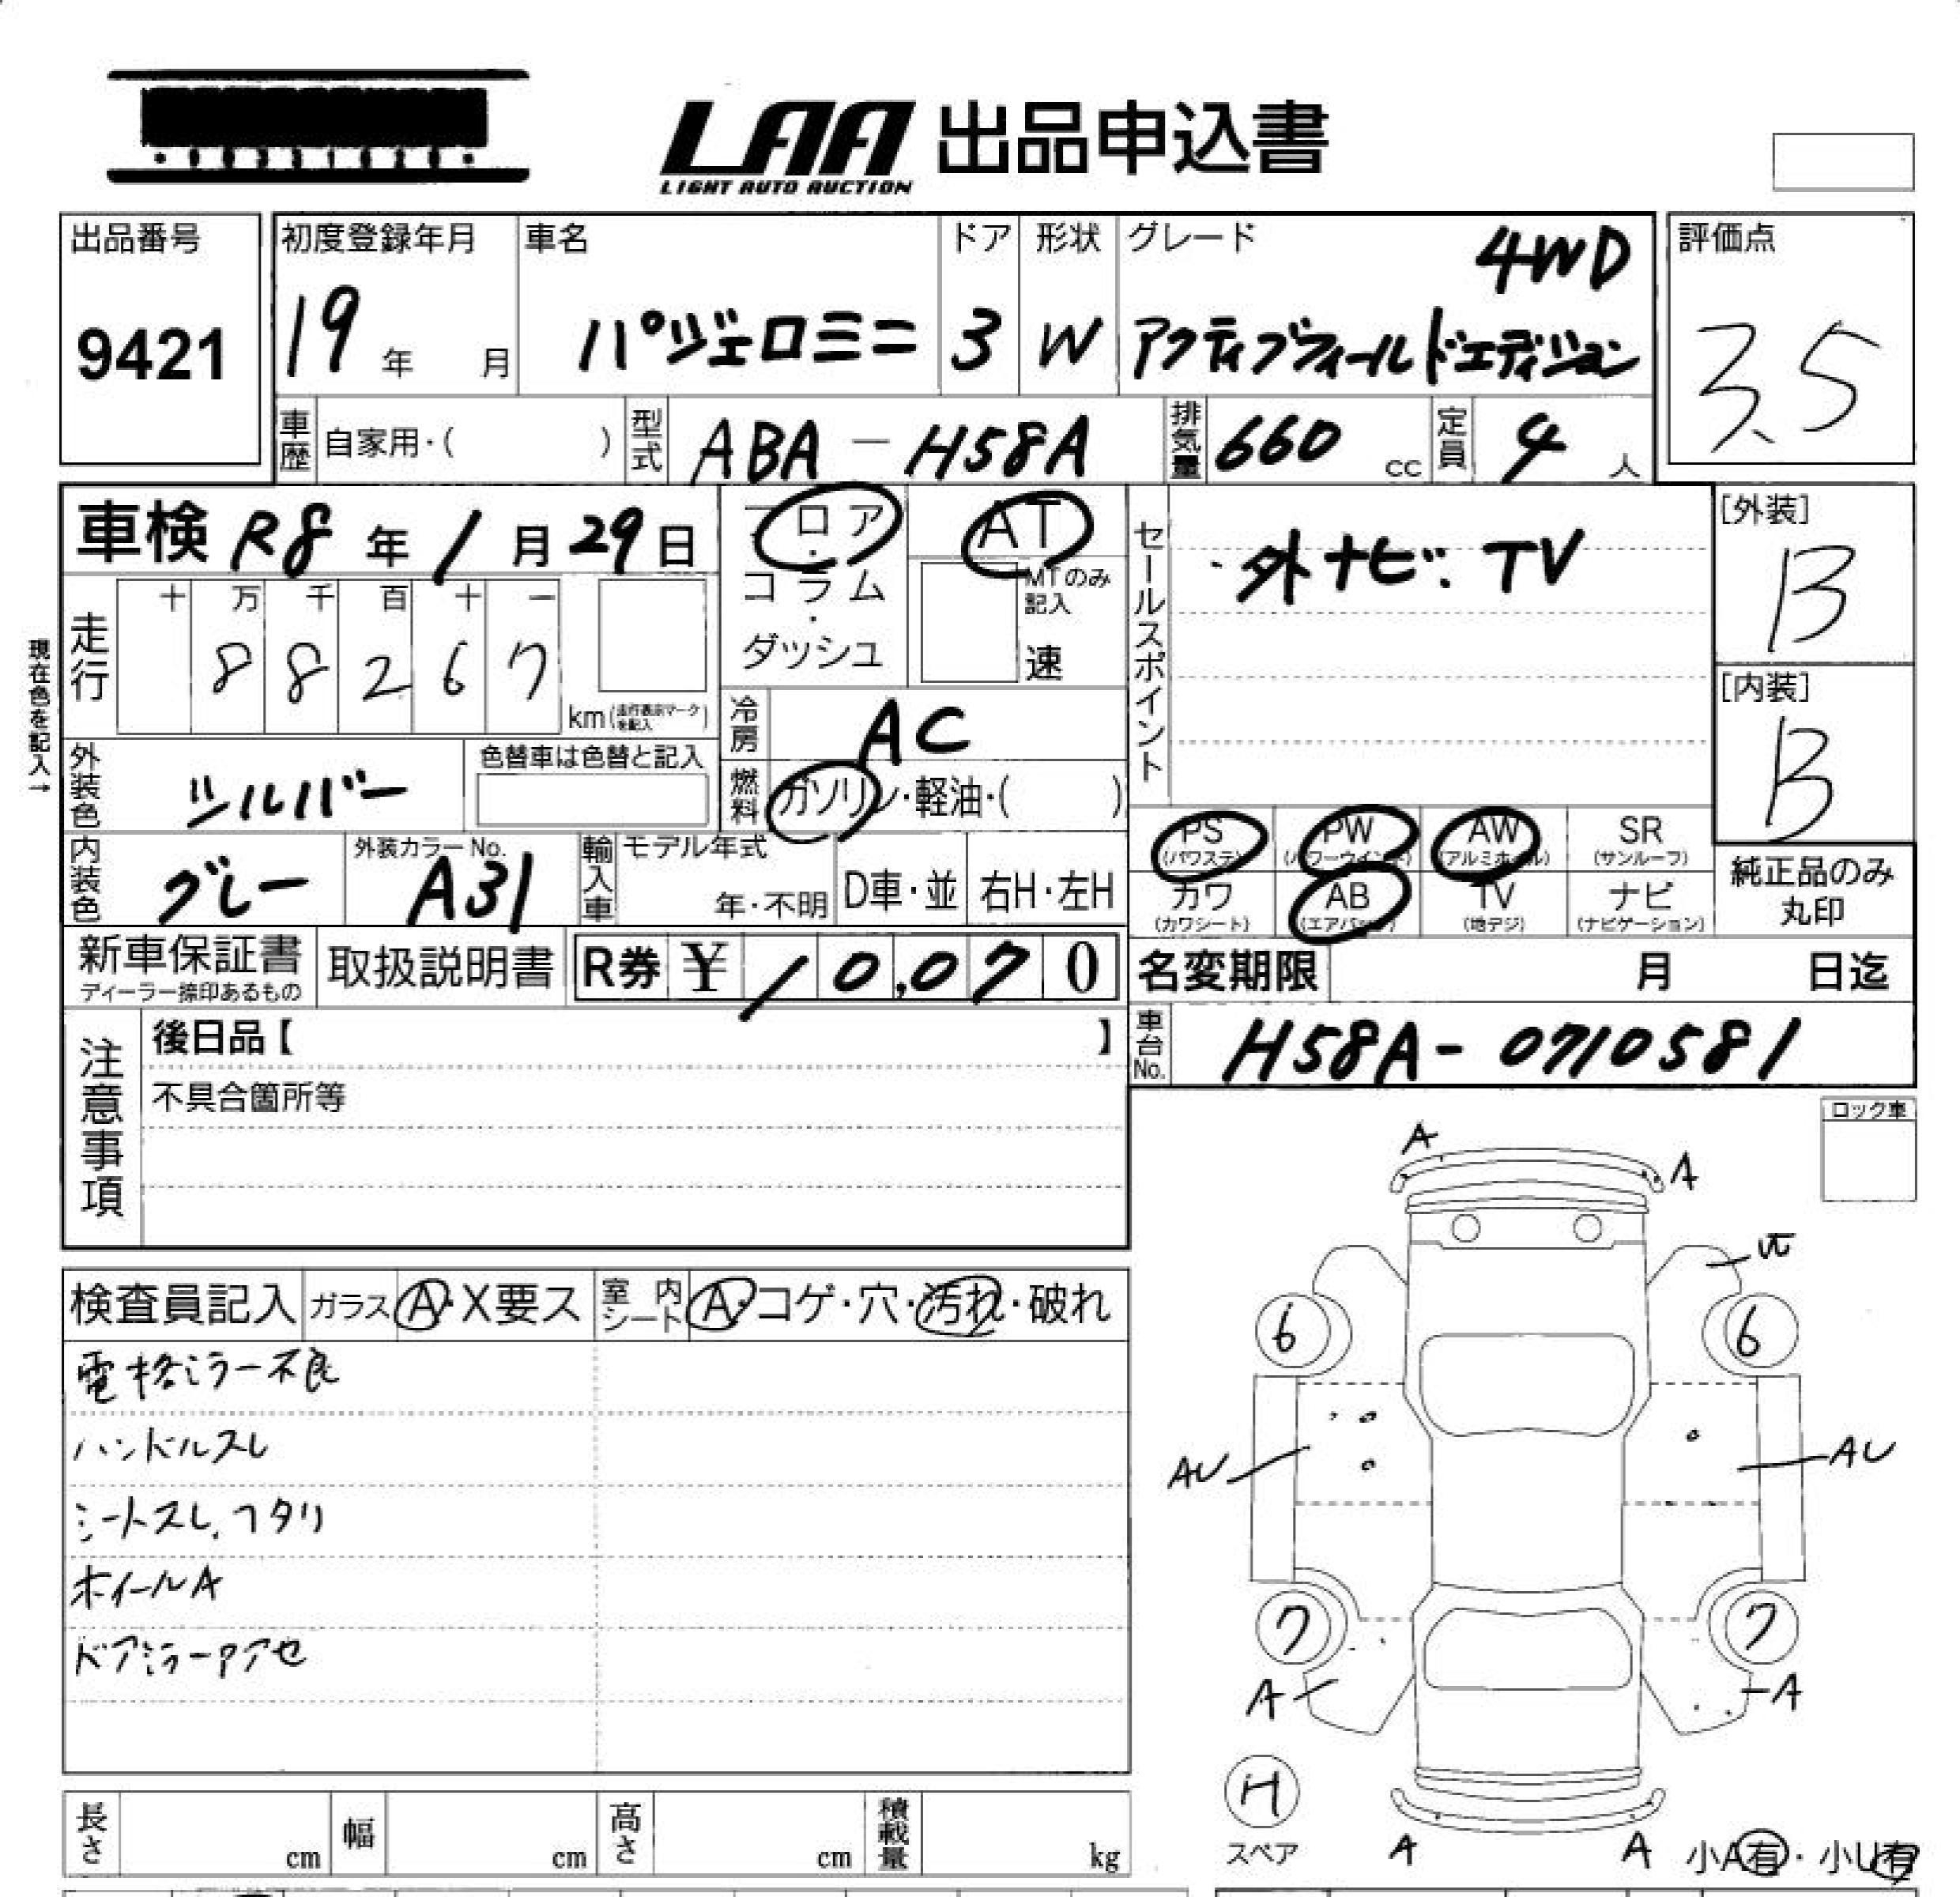 LAA 出品申込書
LIGHT AUTO AUCTION
出品番号
9421
初度登録年月
19 年 月
車名
パジェロミニ
ドア
3
形状
W
グレード
4WD
アクティブフィールドエディション
評価点
3.5
車歴 自家用・( )
型式 ABA-H58A
排気量 660 cc
定員 4 人
車検 R8 年 1 月 29 日
現在色を記入→
走行
十 万 千 百 十 一
8 8 2 6 7
km(走行表示マークを記入)
フロア
・
コラム
・
ダッシュ
AT
MTのみ記入
速
冷房 AC
燃料 ガソリン・軽油・( )
外装色 シルバー
色替車は色替と記入
内装色 グレー
外装カラーNo.
A31
輸入車
モデル年式
年・不明
D車・並
右H・左H
新車保証書
ディーラー捺印あるもの
取扱説明書
R券 ¥ 10,070
セールスポイント
・外ナビ. TV
[外装]
B
[内装]
B
PS (パワステ)
PW (パワーウインド)
AW (アルミホイル)
SR (サンルーフ)
カワ (カワシート)
AB (エアバッグ)
TV (地デジ)
ナビ (ナビゲーション)
純正品のみ
丸印
名変期限 月 日迄
車台No. H58A-0710581
注意事項
後日品【 】
不具合箇所等
ロック車
検査員記入
ガラス A・X要ス
室内シート A・コゲ・穴・汚れ・破れ
電格ミラー不良
ハンドルスレ
シートスレ,ヘタリ
ホイールA
ドアミラーアアセ
A
A
6
6
AU
AU
7
7
A
A
H
スペア
A
A
小A有・小U有
長さ cm
幅 cm
高さ cm
積載量 kg